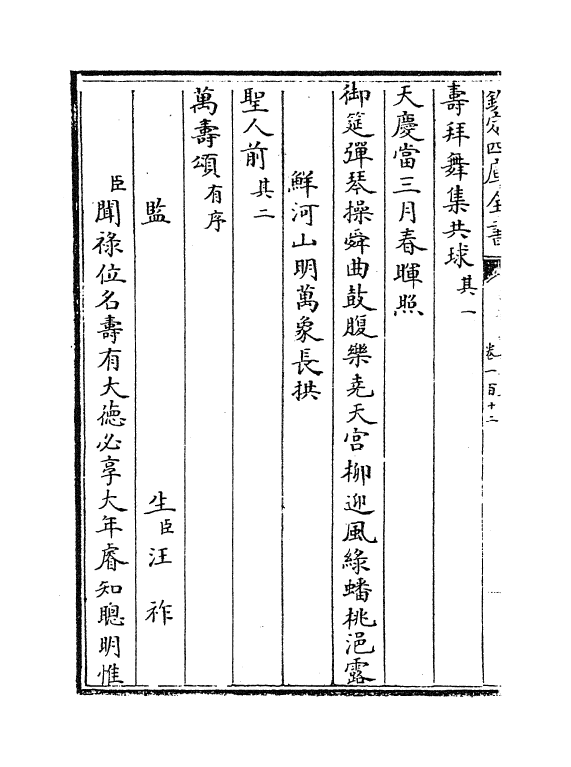 欽定四庫全書
卷一百十二
壽拜舞集共球其一
天慶當三月春暉照
御筵彈琴操舜曲鼓腹樂堯天宫柳迎風綠蟠桃浥露
鮮河山明萬象長拱
聖人前其二
萬壽頌有序
監生臣汪祚
臣聞祿位名壽有大德必享大年睿知聰明惟